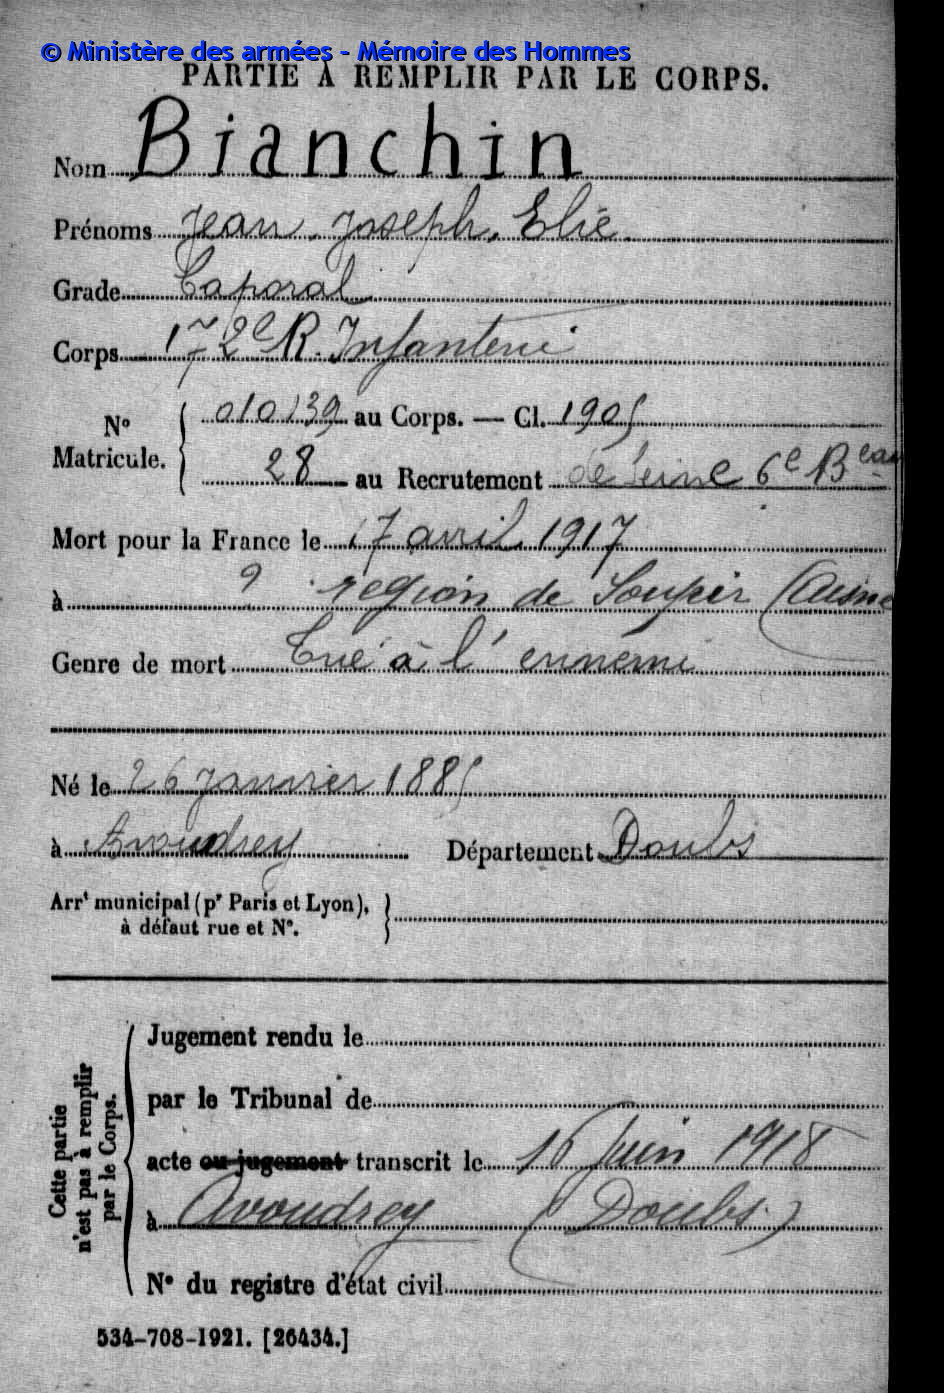 © Ministère des armées - Mémoire des Hommes
PARTIE À REMPLIR PAR LE CORPS.
Nom Bianchin
Prénoms Jean, Joseph, Elie.
Grade Caporal
Corps 172e R. Infanterie
No Matricule. { 010139 au Corps. — Cl. 1905
28 au Recrutement de Seine 6e Beau
Mort pour la France le 17 avril 1917
à ? region de Soupir (Aisne
Genre de mort Tué à l'ennemi
Né le 26 janvier 1885
à Avoudrey Département Doubs
Arrt municipal (pr Paris et Lyon), à défaut rue et No. }
Cette partie n'est pas à remplir par le Corps.
Jugement rendu le
par le Tribunal de
acte ou jugement transcrit le 16 juin 1918
à Avoudrey (Doubs)
No du registre d'état civil
534-708-1921. [26434.]